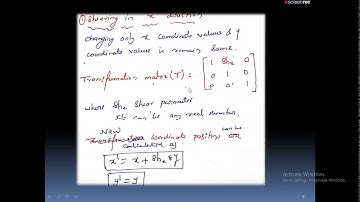 ① Shearing in x direction
changing only x coordinate values & y
coordinate values is remain same.
Transformation matrix(T) = [1 Shx 0
0 1 0
0 0 1]
where Shx Shear parameter
it can be any real number.
New coordinate positions can be
calculated as
x' = x + Shx * y
y' = y
Activate Windows
Go to Settings to activate Windows.